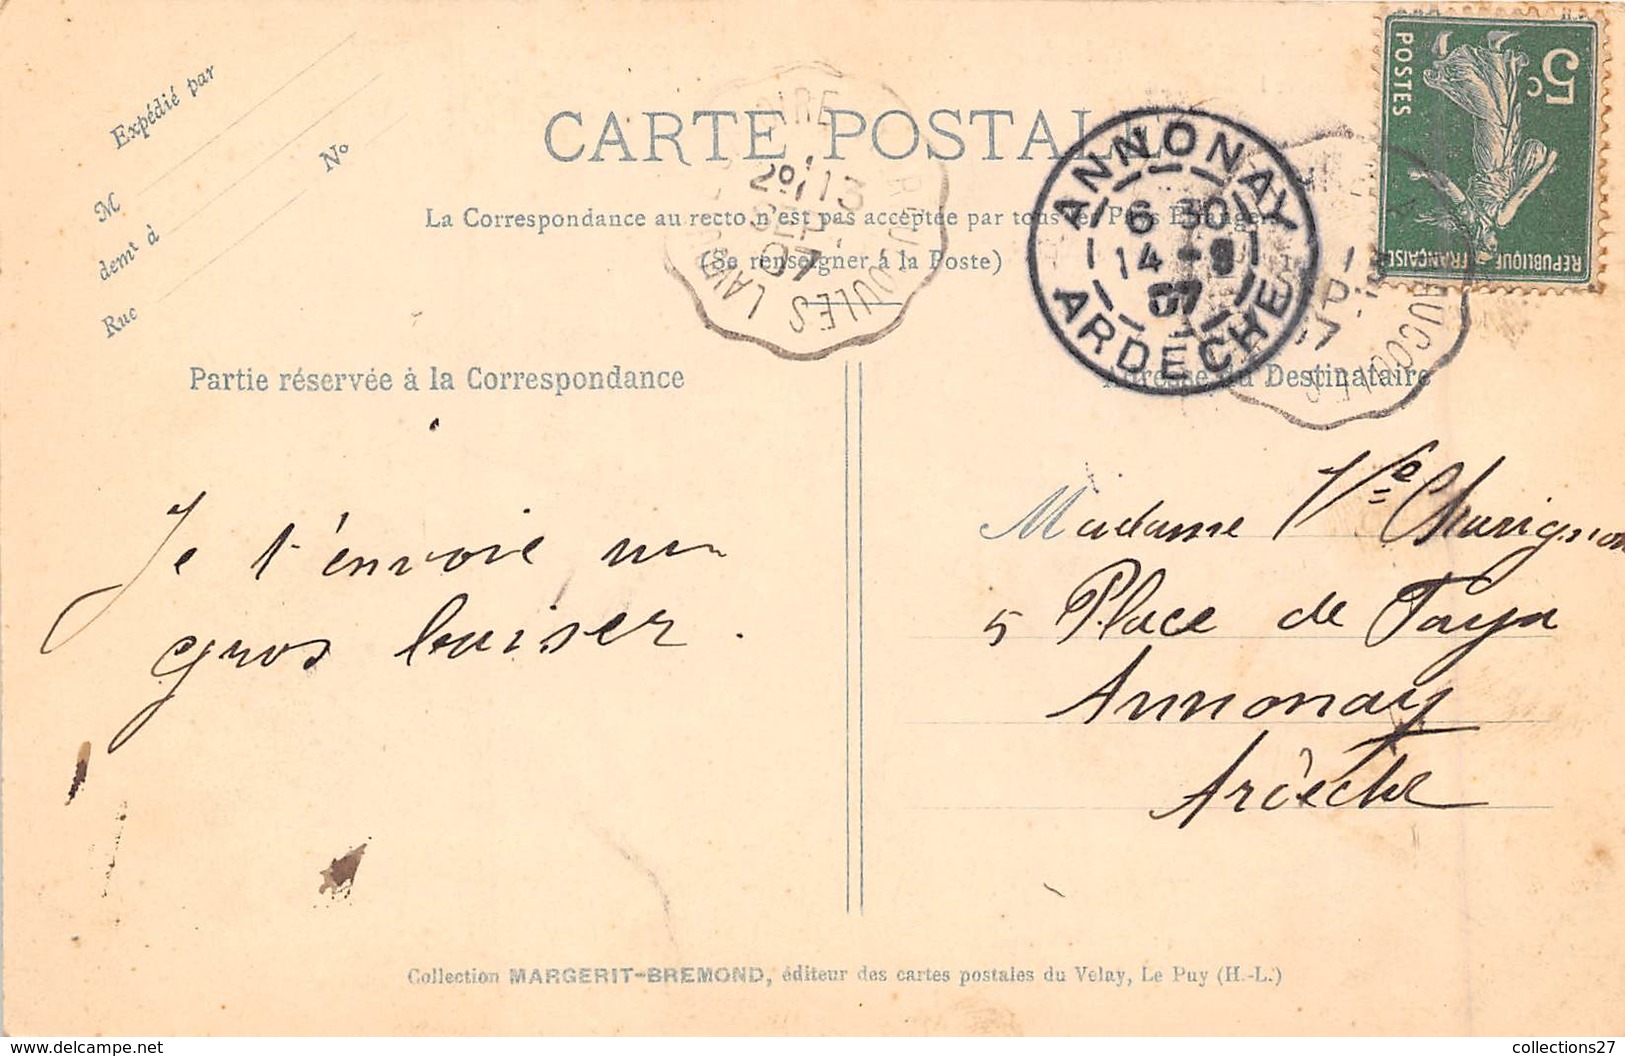 Expédié par
M
demt à
Rue
No
CARTE POSTALE
La Correspondance au recto n'est pas acceptée par tous les Pays Etrangers
(Se renseigner à la Poste)
2º 13
SEP.
07
ANNONAY
6 30
14 -9
07
ARDECHE
5c
POSTES
REPUBLIQUE FRANÇAISE
Partie réservée à la Correspondance
Adresse du Destinataire
Je t'envoie un
gros baiser.
Madame Ve Chavignon
5 Place de Faya
Annonay
Ardèche
Collection MARGERIT-BREMOND, éditeur des cartes postales du Velay, Le Puy (H.-L.)
https://www.delcampe.net
collections27